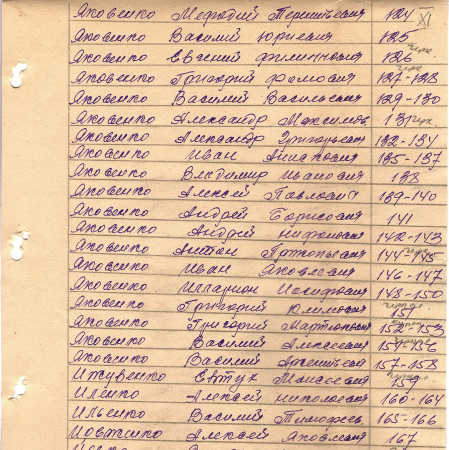 Яковенко Мефодий Терентьевич 124 XI
Яковенко Василий Юрьевич 125
Яковенко Евгений Филиппович 126
Яковенко Григорий Фомович 127-128
Яковенко Василий Васильевич 129-130
Яковенко Александр Максимов. 131
Яковенко Александр Григорьевич 132-134
Яковенко Иван 135-137
Яковенко Владимир Иванович 138
Яковенко Алексей Павлович 139-140
Яковенко Андрей Борисович 141
Яковенко Андрей 142-143
Яковенко Антон Прокопьевич 144-145
Яковенко Иван Яковлевич 146-147
Яковенко Илларион Иосифович 148-150
Яковенко Григорий Климович 151
Яковенко Григорий Мартынович 152-153
Яковенко Василий Алексеевич
Яковенко Василий Арсентьевич 157-158
Евтух Моисеевич 159
Иленко Алексей Николаевич 160-164
Ильенко Василий Тимофеев. 165-166
Алексей Яковлевич 167